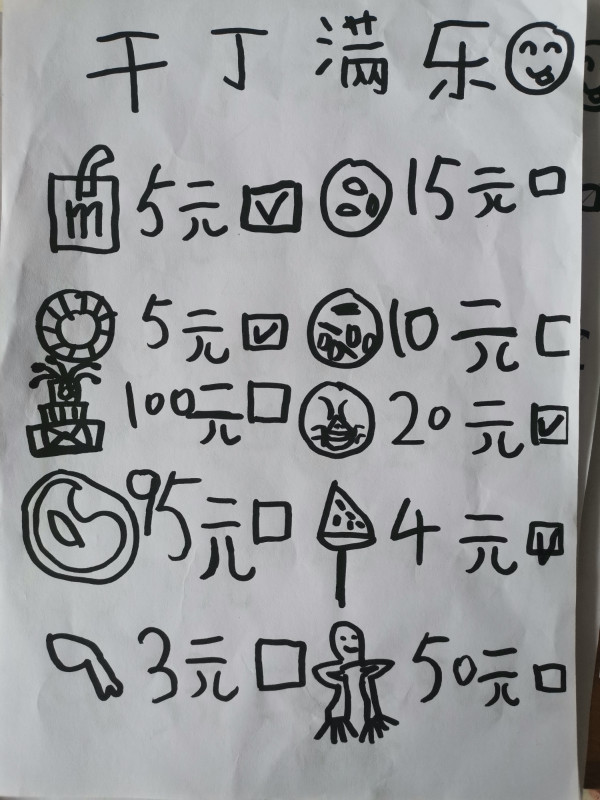 干丁满乐
m 5元 15元
5元 10元
100元 20元
95元 4元
3元 50元